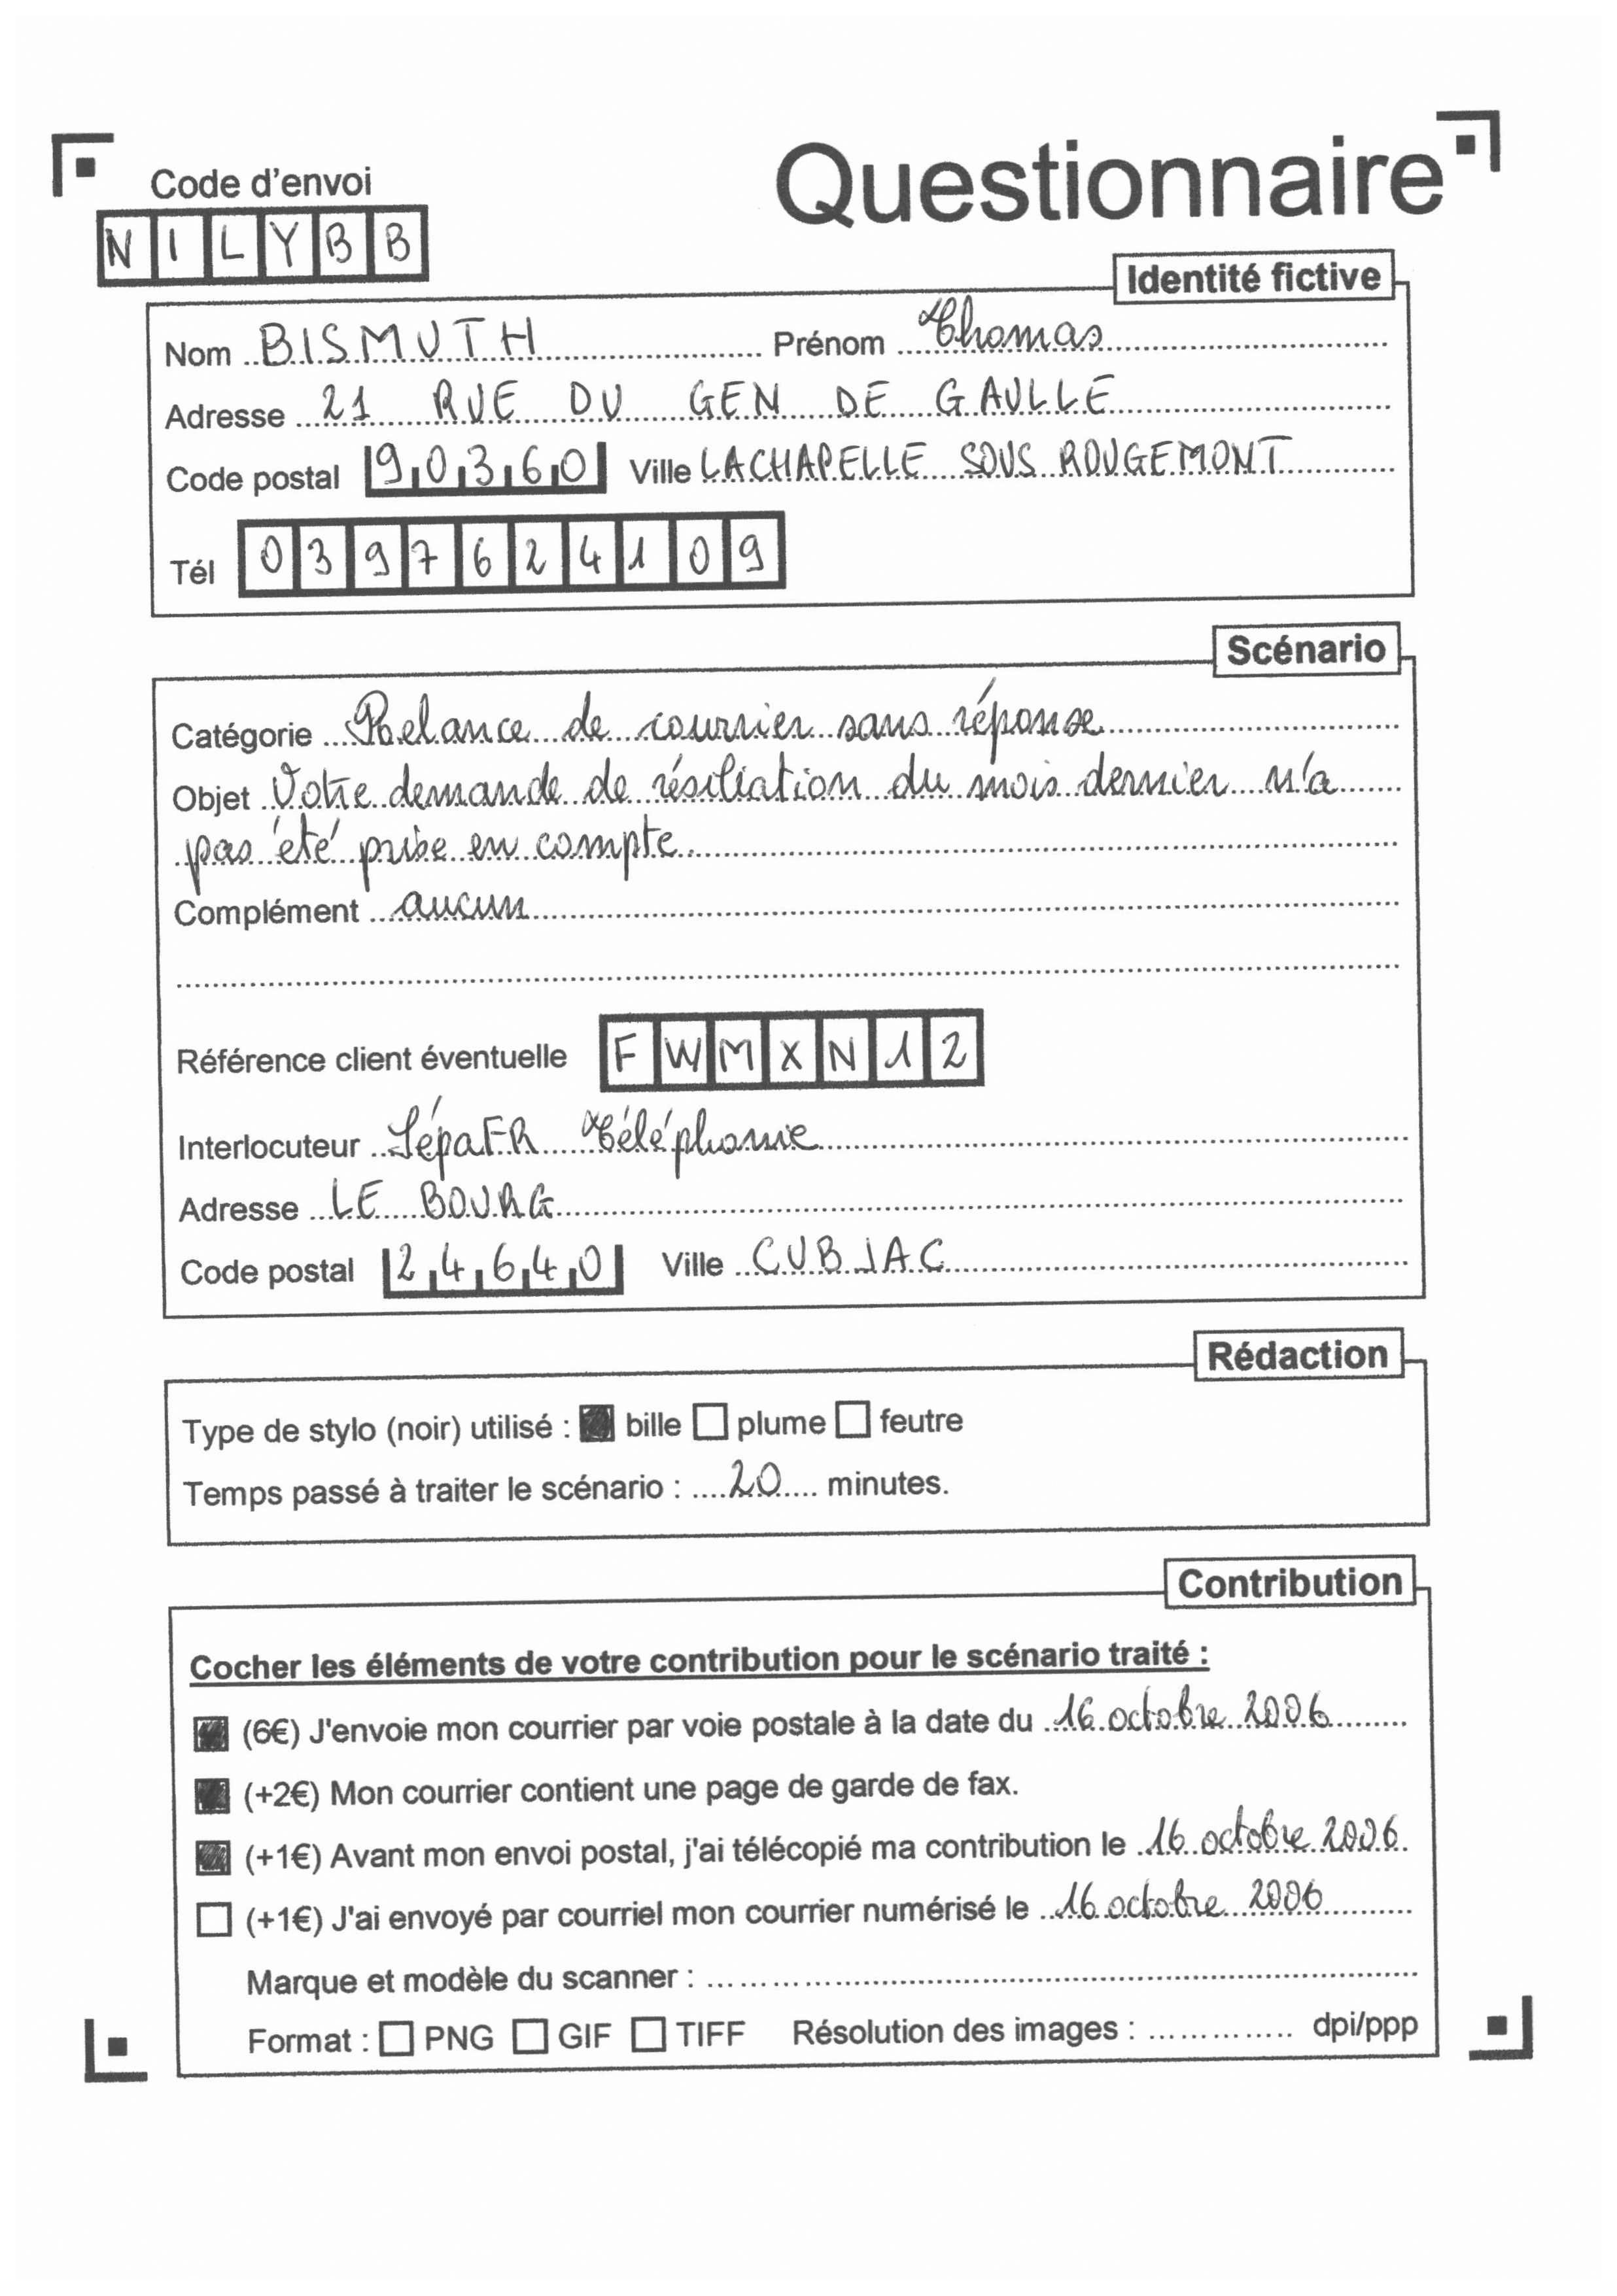 Questionnaire
Code d'envoi
NILYBB
Identité fictive
Nom BISMUTH Prénom Thomas
Adresse 21 RUE DU GEN DE GAULLE
Code postal 90360 Ville LACHAPELLE SOUS ROUGEMONT
Tél 0397624109
Scénario
Catégorie Relance de courrier sans réponse
Objet Votre demande de résiliation du mois dernier n'a
pas été prise en compte.
Complément aucun
Référence client éventuelle FWMXN12
Interlocuteur SépaFR Téléphonie
Adresse LE BOURG
Code postal 24640 Ville CUBJAC
Rédaction
Type de stylo (noir) utilisé : bille plume feutre
Temps passé à traiter le scénario : 20 minutes.
Contribution
Cocher les éléments de votre contribution pour le scénario traité :
(6€) J'envoie mon courrier par voie postale à la date du 16 octobre 2006
(+2€) Mon courrier contient une page de garde de fax.
(+1€) Avant mon envoi postal, j'ai télécopié ma contribution le 16 octobre 2006.
(+1€) J'ai envoyé par courriel mon courrier numérisé le 16 octobre 2006
Marque et modèle du scanner :
Format : PNG GIF TIFF Résolution des images : dpi/ppp